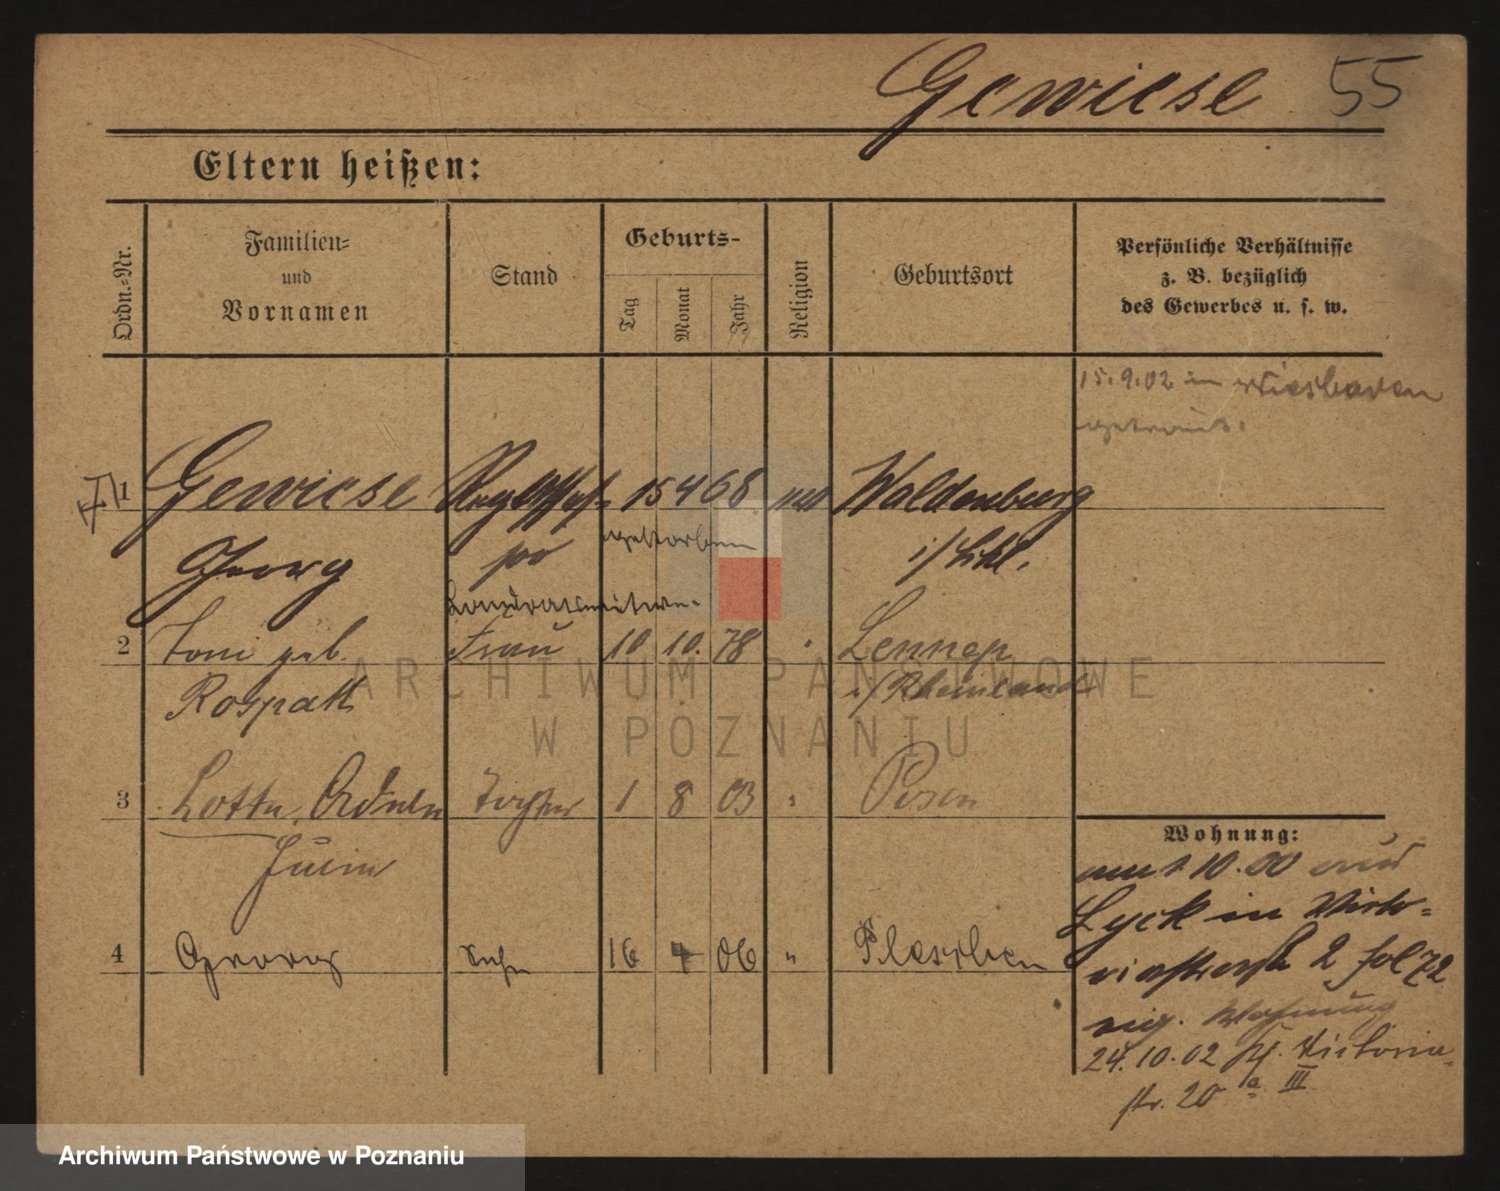 Gewiese 55
Eltern heißen:
Ordn.-Nr.
Familien-
und
Vornamen
Stand
Geburts-
Tag
Monat
Jahr
Religion
Geburtsort
Persönliche Verhältnisse
z. B. bezüglich
des Gewerbes u. s. w.
15.9.02 in Wiesbaden
getraut.
1 Gewiese 15 4 68 Waldenburg
Georg gestorben i/Schl.
2 Toni geb. Frau 10 10. 78 " Lennep
Rospatt i/Rheinland
3 Lotte, Tochter 1 8 03 " Posen
4 Georg Sohn 16 4 06 " Pleschen
Wohnung:
10.00 aus
Lyck in Vikto-
riastraße 2 fol 72
eig. Wohnung
24.10.02 Viktoria-
str. 20 a III
ARCHIWUM PAŃSTWOWE
W POZNANIU
Archiwum Państwowe w Poznaniu